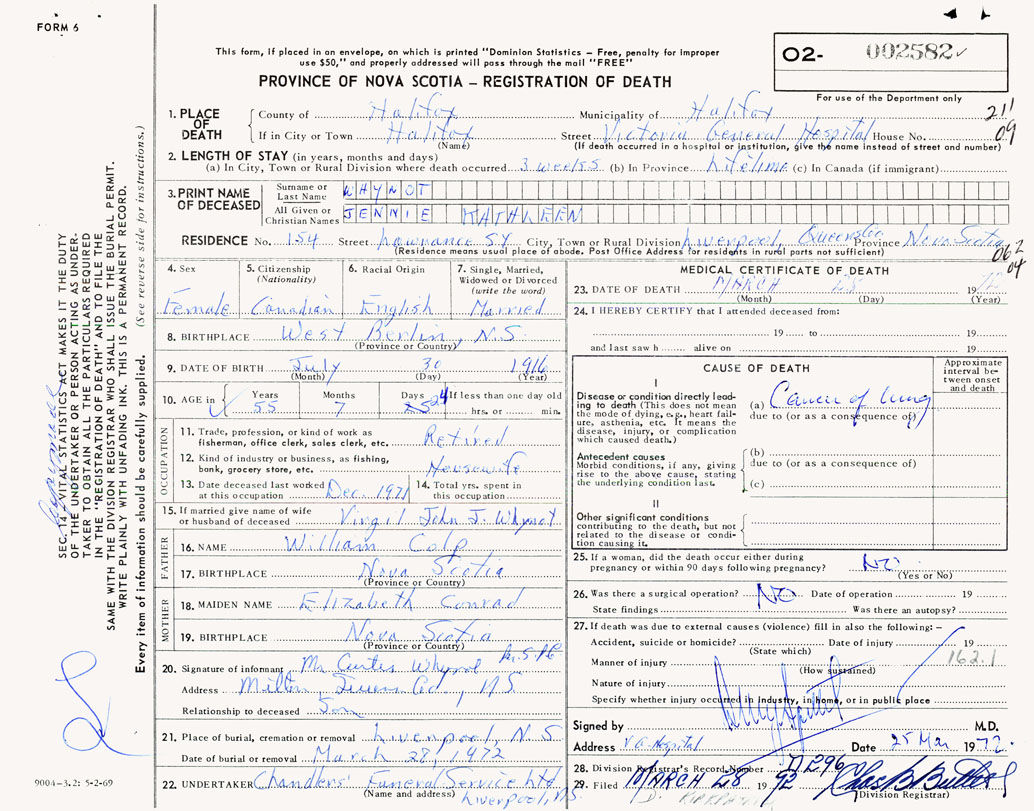 FORM 6
This form, if placed in an envelope, on which is printed "Dominion Statistics – Free, penalty for improper
use $50," and properly addressed will pass through the mail "FREE"
PROVINCE OF NOVA SCOTIA – REGISTRATION OF DEATH
O2- 002582
For use of the Department only
211
09
1. PLACE OF DEATH
County of Halifax Municipality of Halifax
If in City or Town Halifax Street Victoria General Hospital House No.
(Name) (If death occurred in a hospital or institution, give the name instead of street and number)
2. LENGTH OF STAY (in years, months and days)
(a) In City, Town or Rural Division where death occurred 3 weeks (b) In Province Lifetime (c) In Canada (if immigrant)
3. PRINT NAME OF DECEASED
Surname or Last Name WHYNOT
All Given or Christian Names JENNIE KATHLEEN
RESIDENCE No. 154 Street Lawrance St City, Town or Rural Division Liverpool, Province Nova Scotia
(Residence means usual place of abode. Post Office Address for residents in rural parts not sufficient)
062
04
4. Sex
Female
5. Citizenship
(Nationality)
Canadian
6. Racial Origin
English
7. Single, Married,
Widowed or Divorced
(write the word)
Married
8. BIRTHPLACE West Berlin, N.S
(Province or Country)
9. DATE OF BIRTH July 30 1916
(Month) (Day) (Year)
10. AGE in Years Months Days If less than one day old
55 7 hrs. or min.
OCCUPATION
11. Trade, profession, or kind of work as
fisherman, office clerk, sales clerk, etc. Retired
12. Kind of industry or business, as fishing,
bank, grocery store, etc. Housewife
13. Date deceased last worked
at this occupation Dec. 1971
14. Total yrs. spent in
this occupation
15. If married give name of wife
or husband of deceased Virgil John J. Whynot
FATHER
16. NAME William Colp
17. BIRTHPLACE Nova Scotia
(Province or Country)
MOTHER
18. MAIDEN NAME Elizabeth Conrad
19. BIRTHPLACE Nova Scotia
(Province or Country)
20. Signature of informant Mr Curtis Whynot
Address Milton, Queens Co, N.S.
Relationship to deceased Son
21. Place of burial, cremation or removal Liverpool, N.S
Date of burial or removal March 28, 1972
22. UNDERTAKER Chandlers' Funeral Service Ltd
(Name and address) Liverpool, NS
MEDICAL CERTIFICATE OF DEATH
23. DATE OF DEATH MARCH 25 1972
(Month) (Day) (Year)
24. I HEREBY CERTIFY that I attended deceased from:
19 to 19
and last saw h alive on 19
CAUSE OF DEATH
Approximate interval between onset and death
I
Disease or condition directly leading to death (This does not mean the mode of dying, e.g., heart failure, asthenia, etc. It means the disease, injury, or complication which caused death.)
(a) Cancer of lung
due to (or as a consequence of)
Antecedent causes
Morbid conditions, if any, giving rise to the above cause, stating the underlying condition last.
(b)
due to (or as a consequence of)
(c)
II
Other significant conditions
contributing to the death, but not related to the disease or condition causing it.
25. If a woman, did the death occur either during
pregnancy or within 90 days following pregnancy? NO
(Yes or No)
26. Was there a surgical operation? NO Date of operation 19
State findings Was there an autopsy?
27. If death was due to external causes (violence) fill in also the following: –
Accident, suicide or homicide? Date of injury 19
(State which)
162.1
Manner of injury
(How sustained)
Nature of injury
Specify whether injury occurred in industry, in home, or in public place
Signed by M.D.
Address V G Hospital Date 25 Mar 1972
28. Division Registrar's Record Number D296
29. Filed MARCH 28 1972
(Division Registrar)
SEC. 14 – VITAL STATISTICS ACT MAKES IT THE DUTY
OF THE UNDERTAKER OR PERSON ACTING AS UNDERTAKER
TO OBTAIN ALL THE PARTICULARS REQUIRED
IN THE "REGISTRATION OF DEATH" AND TO FILE THE
SAME WITH THE DIVISION REGISTRAR WHO SHALL ISSUE THE BURIAL PERMIT.
WRITE PLAINLY WITH UNFADING INK. THIS IS A PERMANENT RECORD.
Every item of information should be carefully supplied. (See reverse side for instructions.)
9004-3.2: 5-2-69